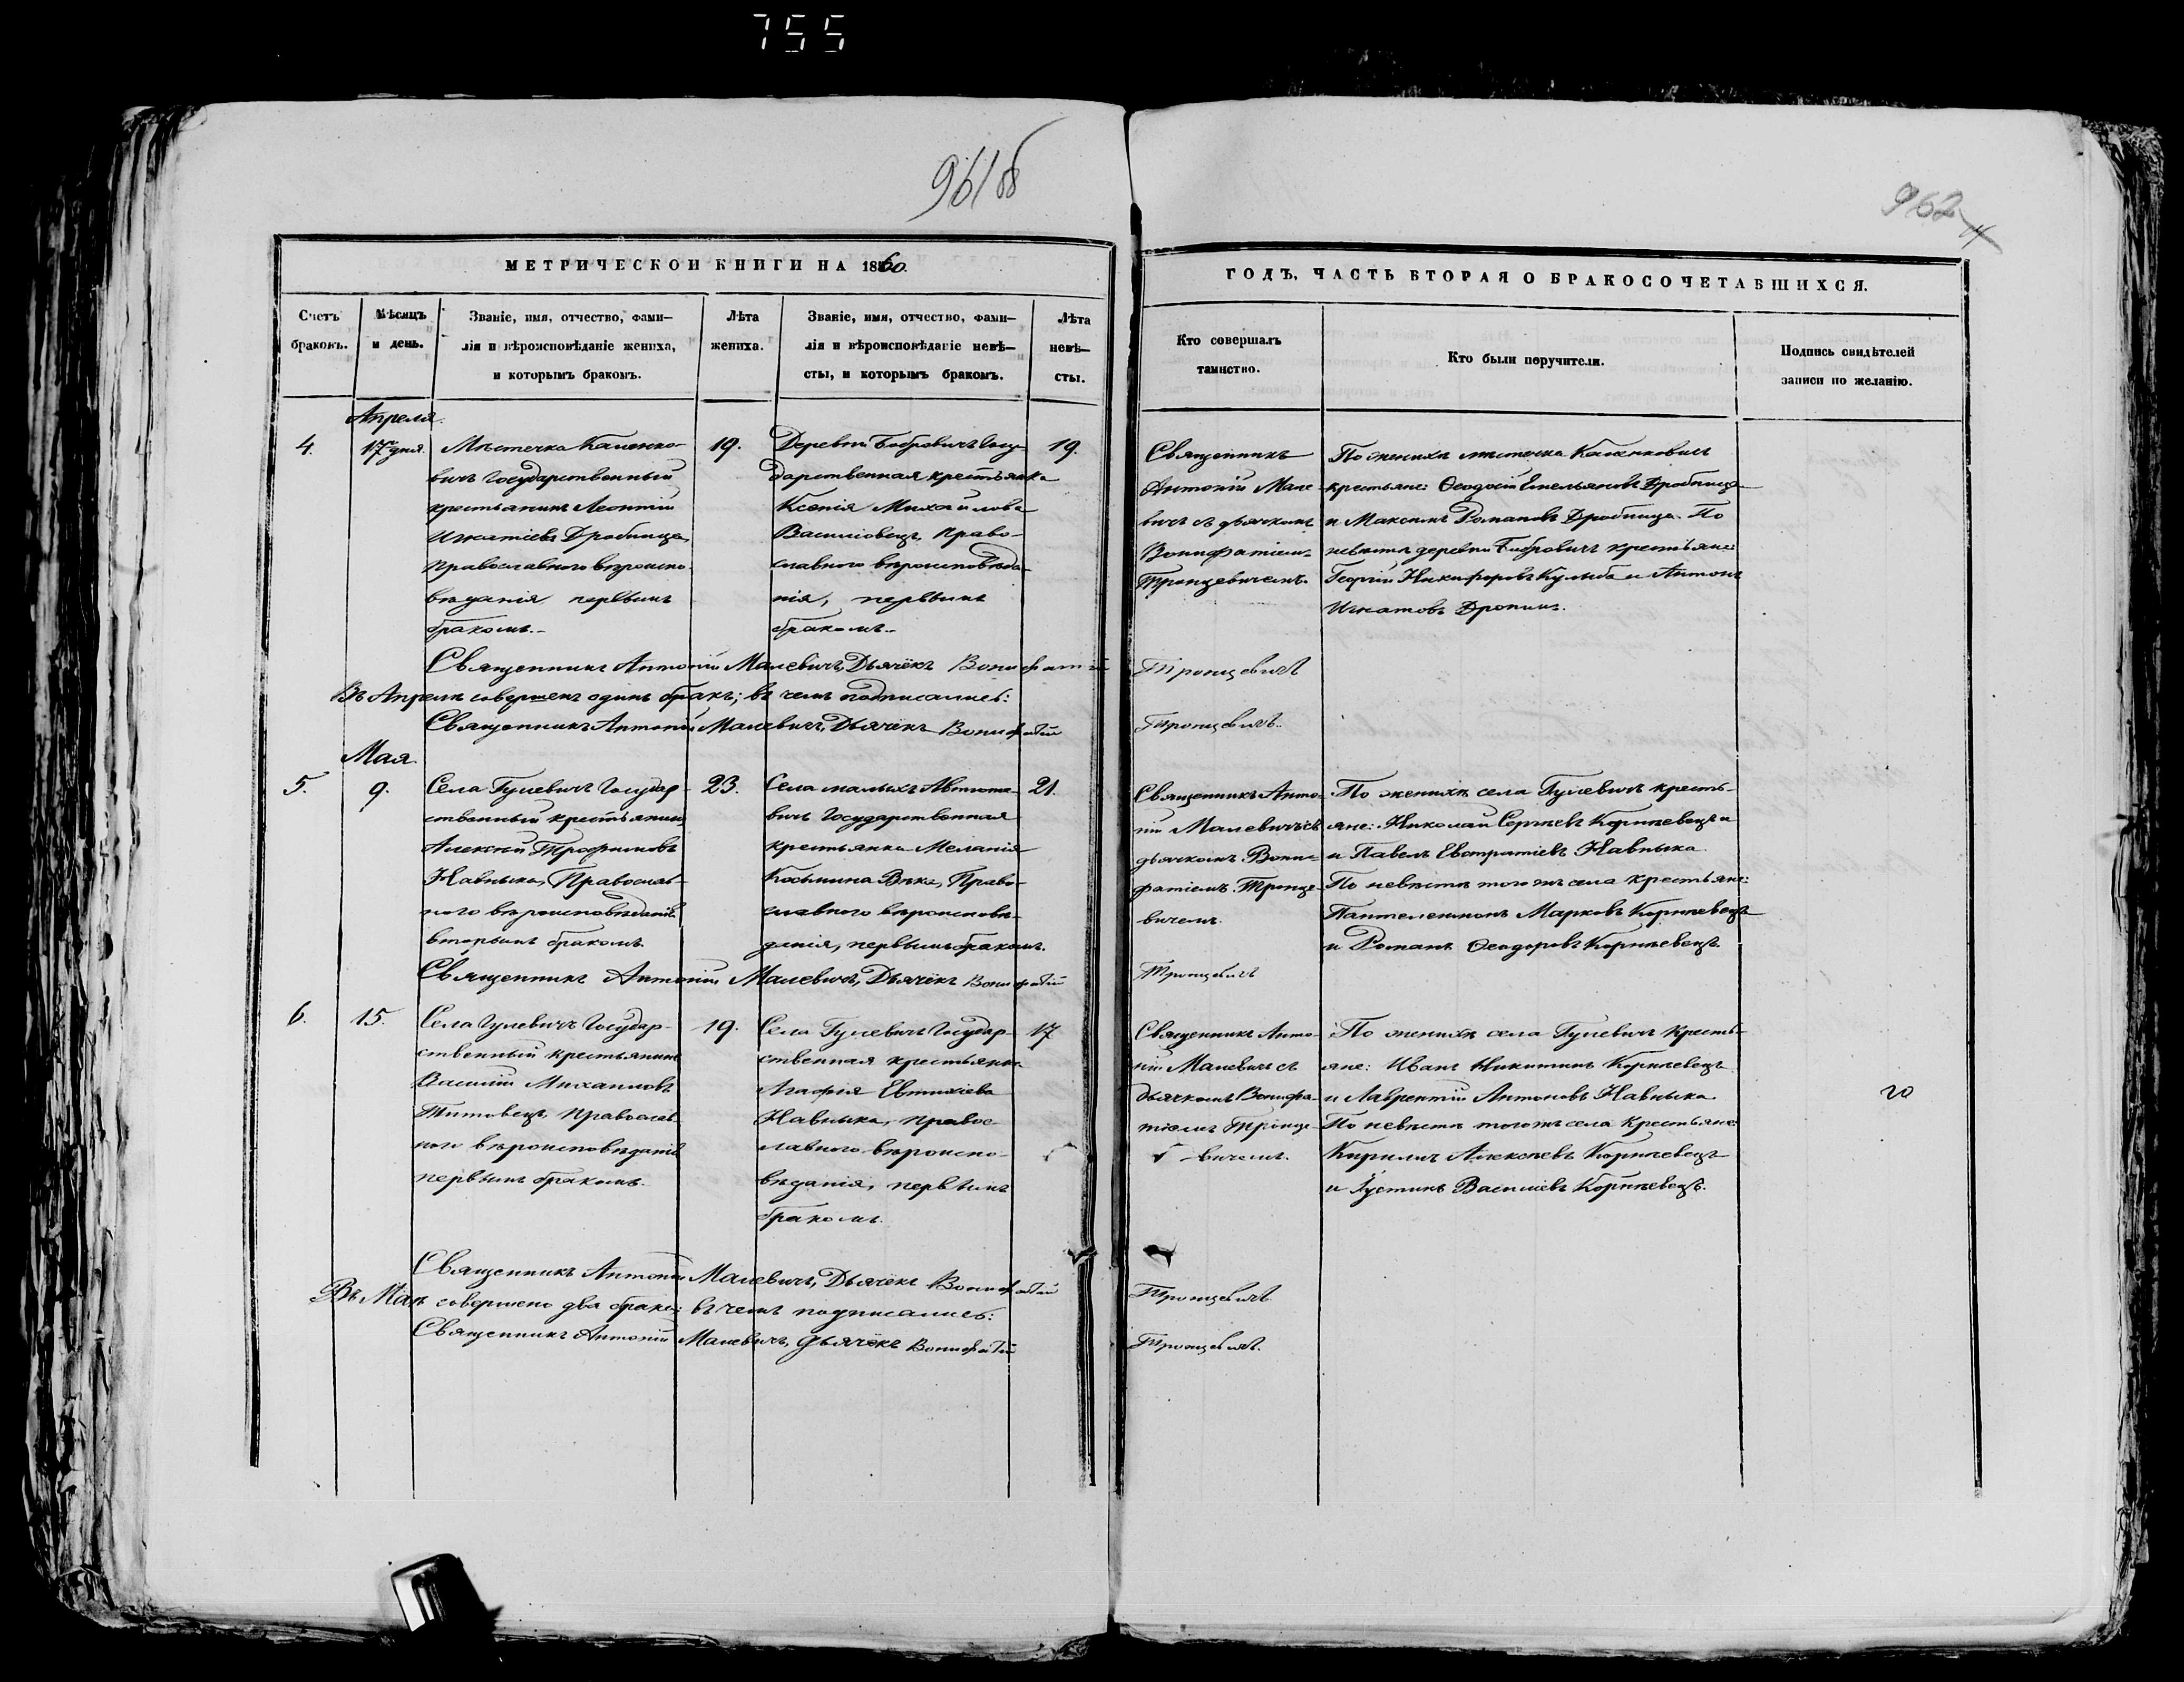 755
961об
962
МЕТРИЧЕСКОЙ КНИГИ НА 1860.
Счетъ браковъ.
Мѣсяцъ и день.
Званіе, имя, отчество, фами-
лія и вѣроисповѣданіе жениха,
и которымъ бракомъ.
Лѣта
жениха.
Званіе, имя, отчество, фами-
лія и вѣроисповѣданіе невѣ-
сты, и которымъ бракомъ.
Лѣта
невѣ-
сты.
ГОДЪ, ЧАСТЬ ВТОРАЯ О БРАКОСОЧЕТАВШИХСЯ.
Кто совершалъ
таинство.
Кто были поручители.
Подпись свидѣтелей
записи по желанію.
Апреля.
4.
17го дня.
Мѣстечка Каменко-
вичъ Государственный
крестьянинъ Леонтій
Игнатіевъ Дробница,
Православнаго вѣроиспо-
вѣданія первымъ
бракомъ.-
19.
Деревни Бобровичъ Госу-
дарственная крестьянка
Ксенія Михайлова
Василовецъ, Право-
славного вѣроисповѣда-
нія, первымъ
бракомъ.-
19.
Священникъ
Антоній Мале-
вичъ съ дьячкомъ
Вонифатіем-
Тронцевичемъ.
По женихѣ мѣстечка Каменковичъ
крестьяне: Ѳеодосій Емельяновъ Дробница
и Максимъ Романовъ Дробница. По
невѣстѣ деревни Бобровичъ крестьяне:
Георгій Никифоровъ Кульба и Антонъ
Игнатовъ Дропиш.
Священникъ Антоній Малевичъ, Дьячёкъ Вонифатій
Тронцевичъ
Въ Апрелѣ совершенъ одинъ бракъ; въ чемъ подписались:
Священникъ Антоній Малевичъ, Дьячёкъ Вонифатій
Тронцевичъ.
Мая.
5.
9.
Села Гулевичъ Государ-
ственный крестьянинъ
Алексѣй Трофимовъ
Навныка, Православ-
ного вѣроисповѣданія
вторымъ бракомъ.
23.
Села малыхъ Автютѣ-
вичъ Государственная
крестьянка Меланія
Косьмина Вѣка, Право-
славного вѣроисповѣ-
данія, первымъ бракомъ.
21.
Священникъ Анто-
ній Малевичъ съ
дьячкомъ Вони-
фатіемъ Тронце-
вичемъ.
По женихѣ села Гулевичъ кресть-
яне: Николай Сергѣевъ Корнѣевецъ и
и Павелъ Евстратіевъ Навныка.
По невѣстѣ того жъ села крестьяне:
Пантелеимонъ Марковъ Корнѣевецъ
и Романъ Ѳеодоровъ Корнѣевецъ.
Священникъ Антоній Малевичъ, Дьячёкъ Вонифатій
Тронцевичъ
6.
15.
Села Гулевичъ Государ-
ственный крестьянинъ
Василій Михаиловъ
Титовецъ, Православ-
ного вѣроисповѣданія
первымъ бракомъ.
19.
Села Гулевичъ Государ-
ственная крестьянка
Агафія Евтихіева
Навныка, правос-
лавного вѣроиспо-
вѣданія, первымъ
бракомъ.
17
Священникъ Анто-
ній Малевичъ съ
дьячкомъ Вонифа-
тіемъ Тронце-
вичемъ.
По женихѣ села Гулевичъ кресть-
яне: Иванъ Никитинъ Корнѣевецъ
и Лаврентій Антоновъ Навныка.
По невѣстѣ того жъ села крестьяне
Кирилъ Алексѣевъ Корнѣевецъ
и Іустинъ Василіевъ Корнѣевецъ.
Священникъ Антоній Малевичъ, Дьячёкъ Вонифатій
Тронцевичъ
Въ Маѣ совершено два брака; въ чемъ подписались:
Священникъ Антоній Малевичъ, дьячёкъ Вонифатій
Тронцевичъ.